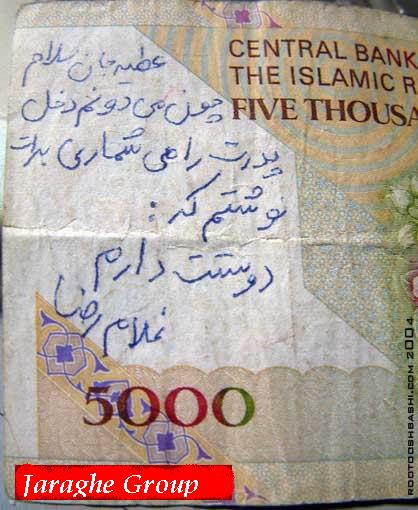 عطیه جان سلام
چون می دونم دخل
پدرت را می شماری برات
نوشتم که :
دوستت دارم
غلام رضا
CENTRAL BANK
THE ISLAMIC R
FIVE THOUSA
5000
Jaraghe Group
ROOTOOSHBASHI.COM 2004